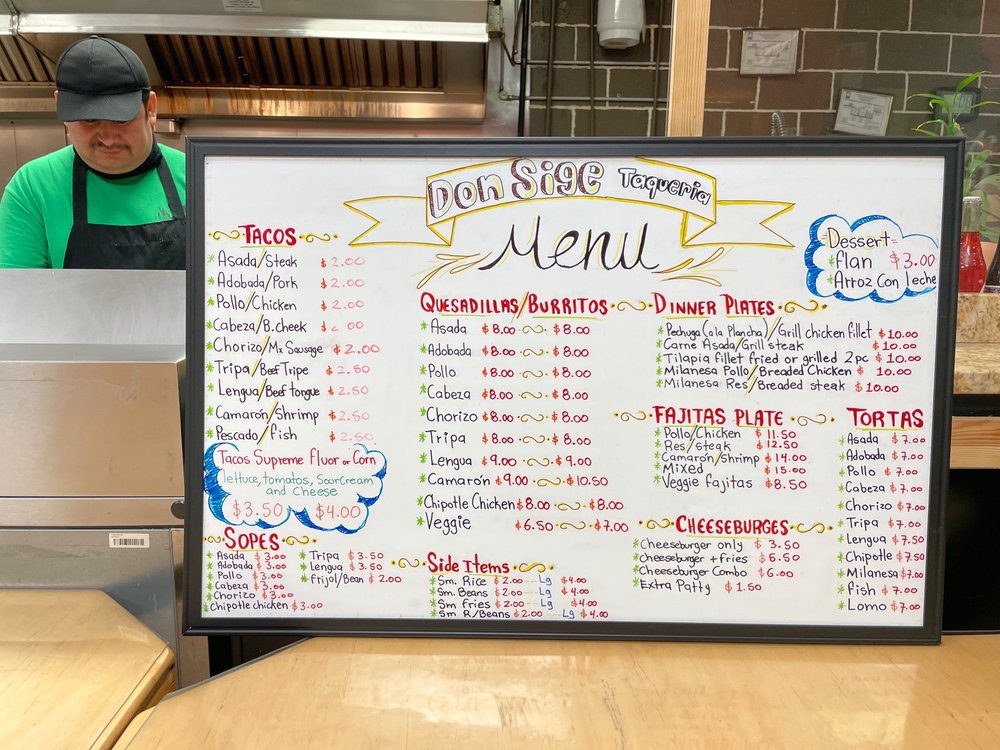 Don Sige Taqueria
Menu
TACOS
* Asada/Steak $ 2.00
* Adobada/Pork $ 2.00
* Pollo/Chicken $ 2.00
* Cabeza/B.cheek $ 2.00
* Chorizo/Mx Sausage $ 2.00
* Tripa/Beef Tripe $ 2.50
* Lengua/Beef tongue $ 2.50
* Camaron/Shrimp $ 2.50
* Pescado/fish $ 2.50
Tacos Supreme Fluor or Corn
lettuce, tomatos, SourCream
and Cheese
$3.50 $4.00
SOPES
* Asada $ 3.00
* Adobada $ 3.00
* Pollo $ 3.00
* Cabeza $ 3.00
* Chorizo $ 3.00
* Chipotle chicken $ 3.00
* Tripa $ 3.50
* Lengua $ 3.50
* Frijol/Bean $ 2.00
QUESADILLAS/BURRITOS
* Asada $ 8.00 $ 8.00
* Adobada $ 8.00 $ 8.00
* Pollo $ 8.00 $ 8.00
* Cabeza $ 8.00 $ 8.00
* Chorizo $ 8.00 $ 8.00
* Tripa $ 8.00 $ 8.00
* Lengua $ 9.00 $ 9.00
* Camarón $ 9.00 $ 10.50
* Chipotle Chicken $ 8.00 $ 8.00
* Veggie $ 6.50 $ 7.00
Side Items
* Sm. Rice $ 2.00 Lg $ 4.00
* Sm. Beans $ 2.00 Lg $ 4.00
* Sm fries $ 2.00 Lg $ 4.00
* Sm R/Beans $ 2.00 Lg $ 4.00
Dessert
* flan $ 3.00
* Arroz Con leche
DINNER PLATES
* Pechuga (a la Plancha)/Grill chicken fillet $ 10.00
* Carne Asada/Grill steak $ 10.00
* Tilapia fillet fried or grilled 2 pc $ 10.00
* Milanesa Pollo/Breaded Chicken $ 10.00
* Milanesa Res/Breaded steak $ 10.00
FAJITAS PLATE
* Pollo/Chicken $ 11.50
* Res/steak $ 12.50
* Camarón/shrimp $ 14.00
* Mixed $ 15.00
* Veggie fajitas $ 8.50
CHEESEBURGES
* Cheeseburger only $ 3.50
* cheeseburger + fries $ 5.50
* Cheeseburger Combo $ 6.00
* Extra Patty $ 1.50
TORTAS
* Asada $ 7.00
* Adobada $ 7.00
* Pollo $ 7.00
* Cabeza $ 7.00
* Chorizo $ 7.00
* Tripa $ 7.00
* Lengua $ 7.50
* Chipotle $ 7.50
* Milanesa $ 7.00
* fish $ 7.00
* Lomo $ 7.00